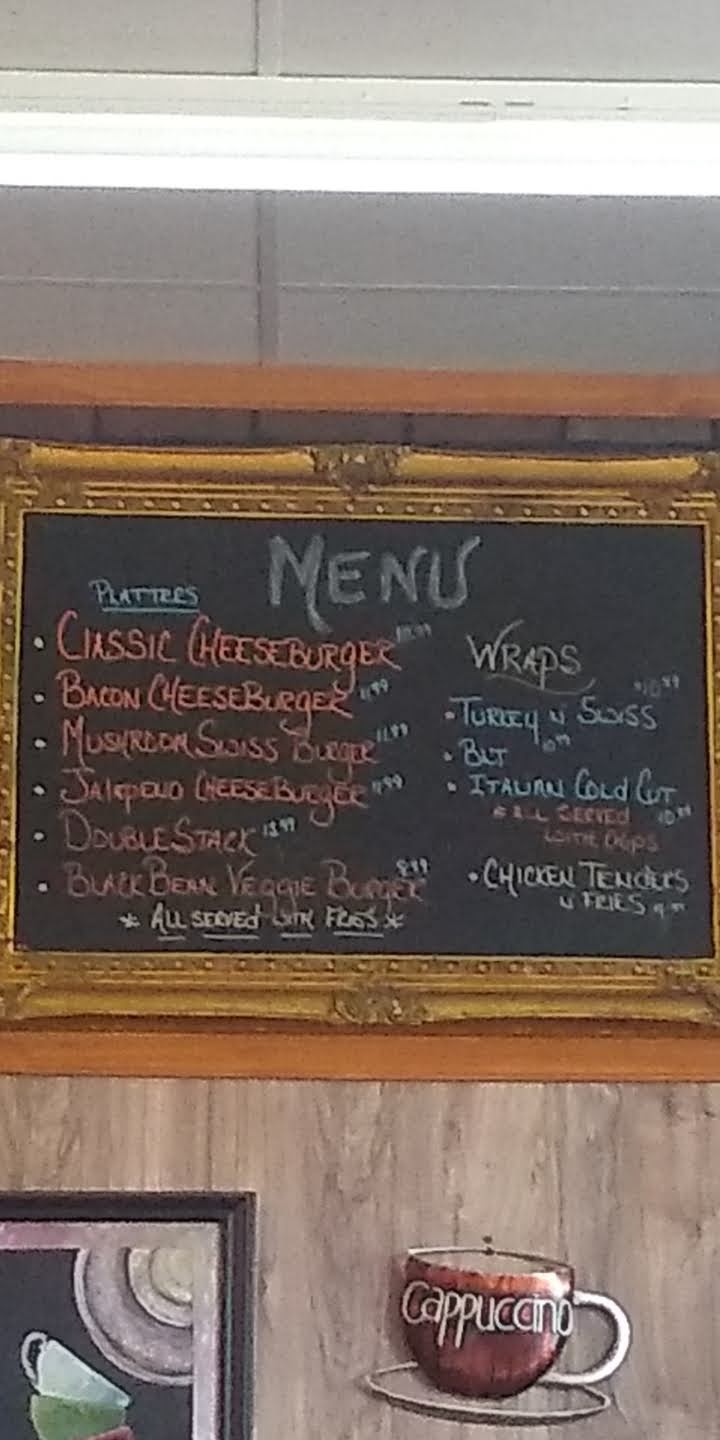 MENU
PLATTERS
• CLASSIC CHEESEBURGER
• BACON CHEESEBURGER 11.99
• MUSHROOM SWISS BURGER 11.99
• JALAPENO CHEESEBURGER 11.99
• DOUBLE STACK 13.99
• BLACK BEAN VEGGIE BURGER 8.99
* ALL SERVED WITH FRIES *
WRAPS
• TURKEY N SWISS $10.99
• BLT 10.99
• ITALIAN COLD CUT 10.99
* ALL SERVED
WITH CHIPS
• CHICKEN TENDERS
N FRIES
Cappuccino